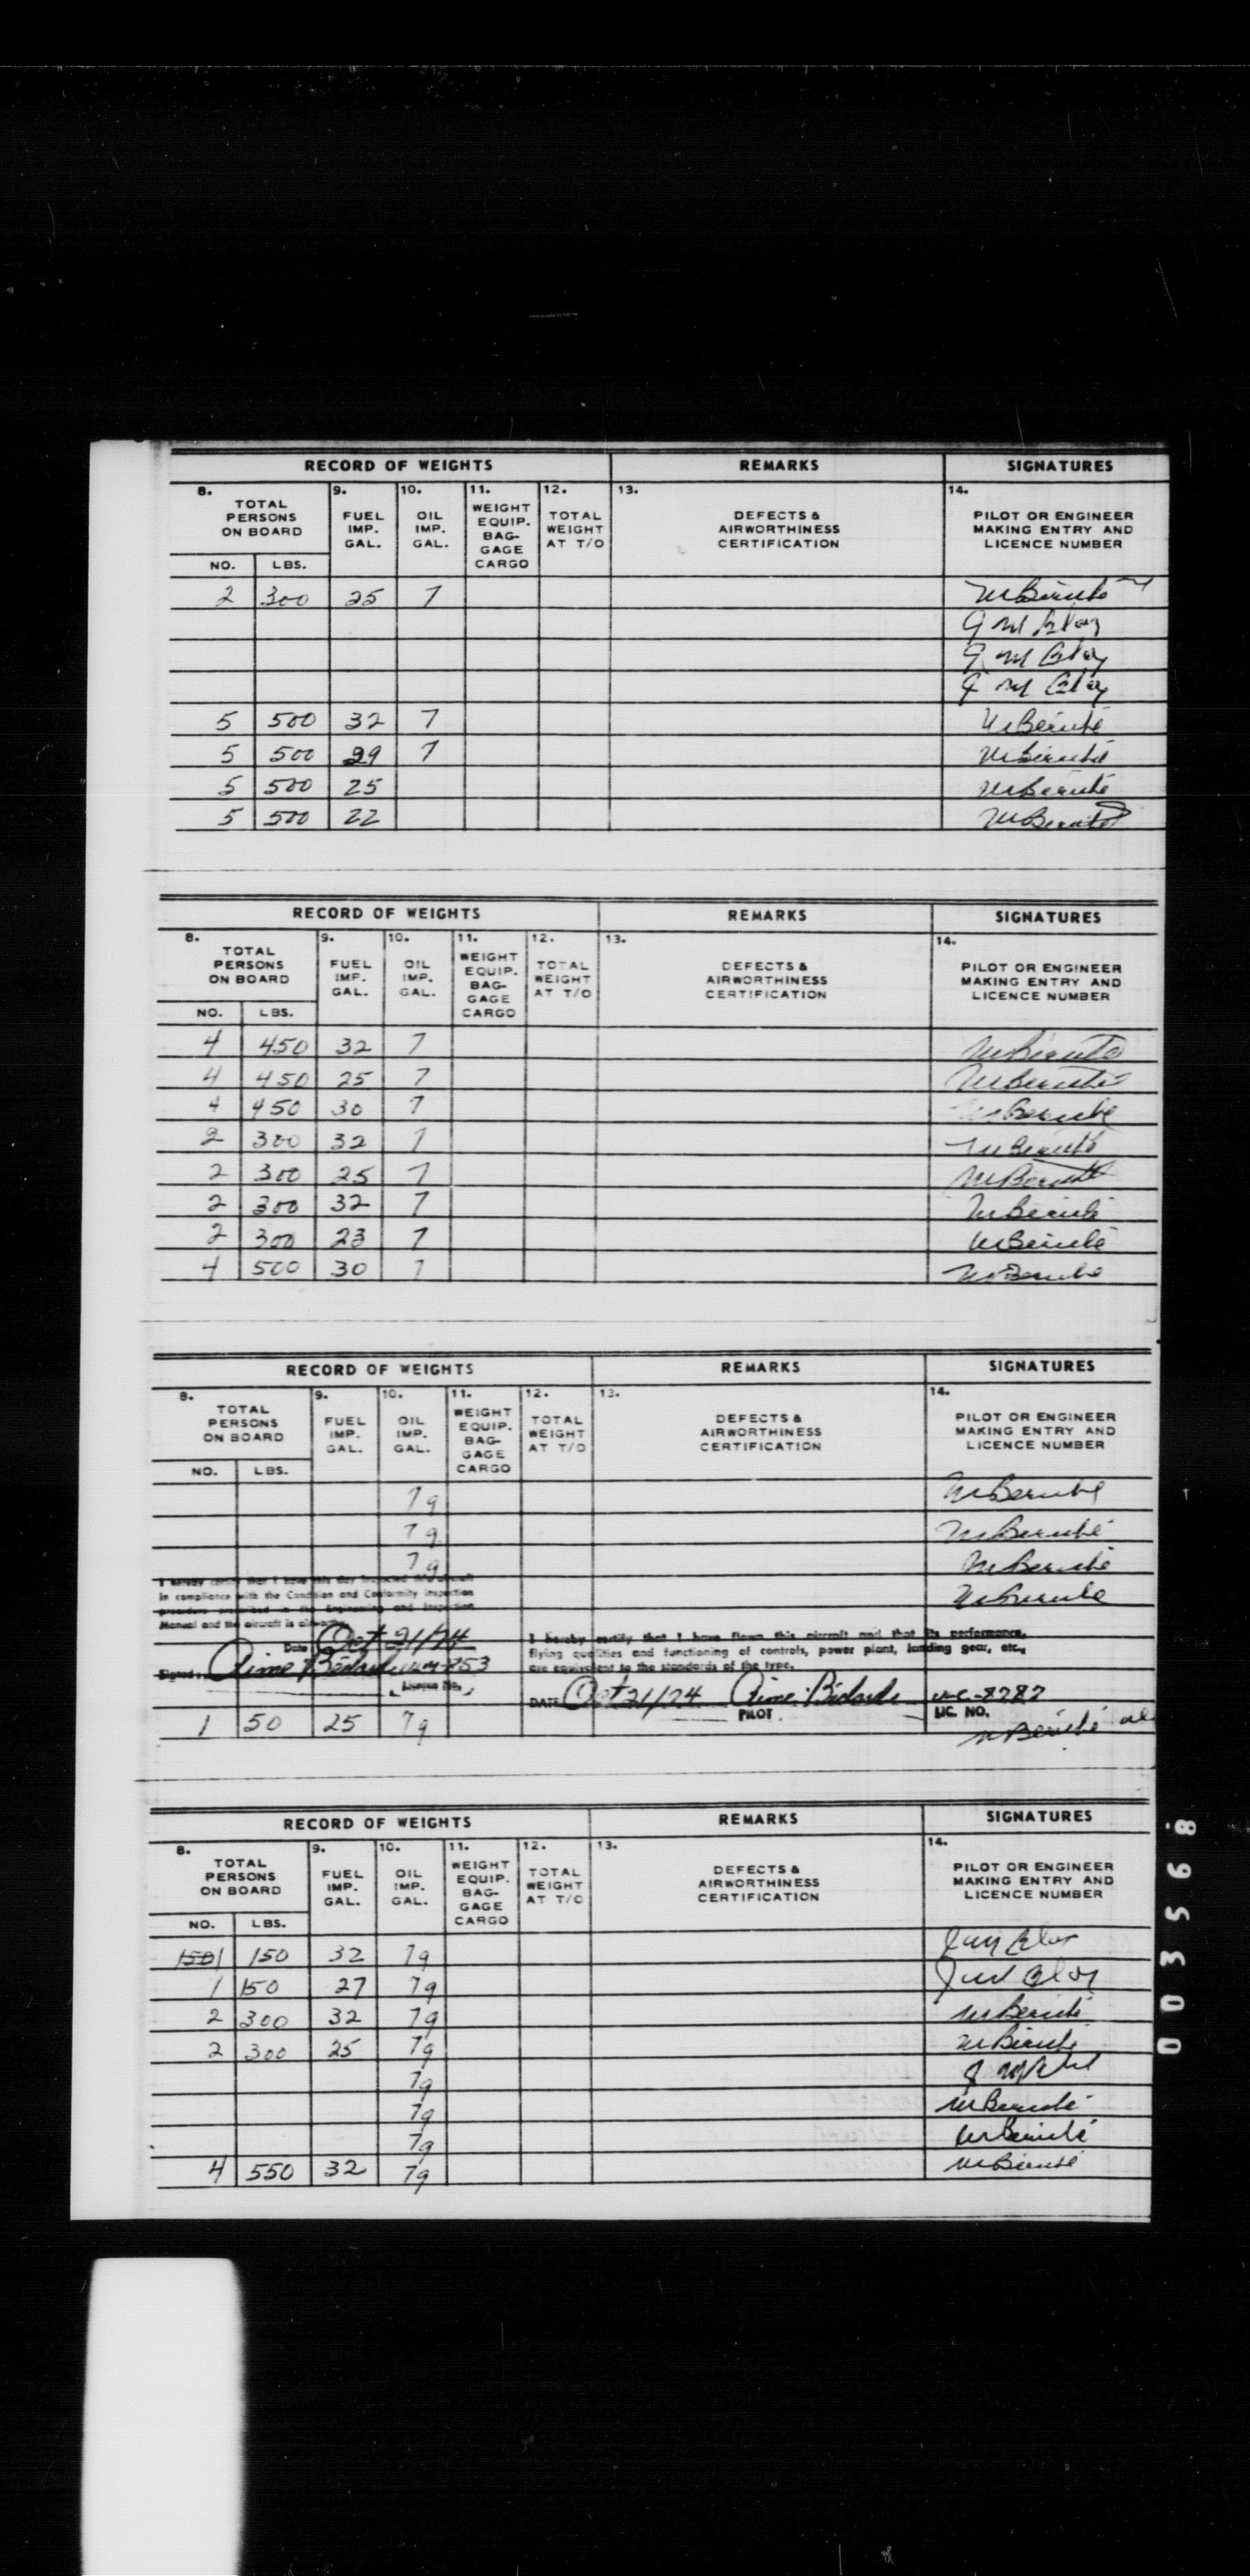 RECORD OF WEIGHTS REMARKS SIGNATURES
8. TOTAL PERSONS ON BOARD 9. FUEL IMP. GAL. 10. OIL IMP. GAL. 11. WEIGHT EQUIP. BAG- GAGE CARGO 12. TOTAL WEIGHT AT T/O 13. DEFECTS & AIRWORTHINESS CERTIFICATION 14. PILOT OR ENGINEER MAKING ENTRY AND LICENCE NUMBER
NO. LBS.
2 300 25 7 M Bérubé
5 500 32 7 M Bérubé
5 500 29 7 M Bérubé
5 500 25 M Bérubé
5 500 22 M Bérubé
RECORD OF WEIGHTS REMARKS SIGNATURES
8. TOTAL PERSONS ON BOARD 9. FUEL IMP. GAL. 10. OIL IMP. GAL. 11. WEIGHT EQUIP. BAG- GAGE CARGO 12. TOTAL WEIGHT AT T/O 13. DEFECTS & AIRWORTHINESS CERTIFICATION 14. PILOT OR ENGINEER MAKING ENTRY AND LICENCE NUMBER
NO. LBS.
4 450 32 7 M Bérubé
4 450 25 7 M Bérubé
4 450 30 7 M Bérubé
2 300 32 7 M Bérubé
2 300 25 7 M Bérubé
2 300 32 7 M Bérubé
2 300 23 7 M Bérubé
4 500 30 7 M Bérubé
RECORD OF WEIGHTS REMARKS SIGNATURES
8. TOTAL PERSONS ON BOARD 9. FUEL IMP. GAL. 10. OIL IMP. GAL. 11. WEIGHT EQUIP. BAG- GAGE CARGO 12. TOTAL WEIGHT AT T/O 13. DEFECTS & AIRWORTHINESS CERTIFICATION 14. PILOT OR ENGINEER MAKING ENTRY AND LICENCE NUMBER
NO. LBS.
7g M Bérubé
7g M Bérubé
7g M Bérubé
M Bérubé
I hereby certify that I have this day inspected aircraft
in compliance with the Condition and Conformity inspection
procedure prescribed in the Engineering and Inspection
Manual and the aircraft is
Date Oct 21/74
Signed: Aime Bédard 253
Licence No.
I hereby certify that I have flown this aircraft and that its performance,
flying qualities and functioning of controls, power plant, landing gear, etc.,
are equivalent to the standards of the type.
DATE Oct 21/74 Aime Bédard 8787
PILOT LIC. NO.
1 50 25 7g M Bérubé
RECORD OF WEIGHTS REMARKS SIGNATURES
8. TOTAL PERSONS ON BOARD 9. FUEL IMP. GAL. 10. OIL IMP. GAL. 11. WEIGHT EQUIP. BAG- GAGE CARGO 12. TOTAL WEIGHT AT T/O 13. DEFECTS & AIRWORTHINESS CERTIFICATION 14. PILOT OR ENGINEER MAKING ENTRY AND LICENCE NUMBER
NO. LBS.
150 1 150 32 7g
1 150 27 7g
2 300 32 7g M Bérubé
2 300 25 7g M Bérubé
7g
7g M Bérubé
7g M Bérubé
4 550 32 7g M Bérubé
003568